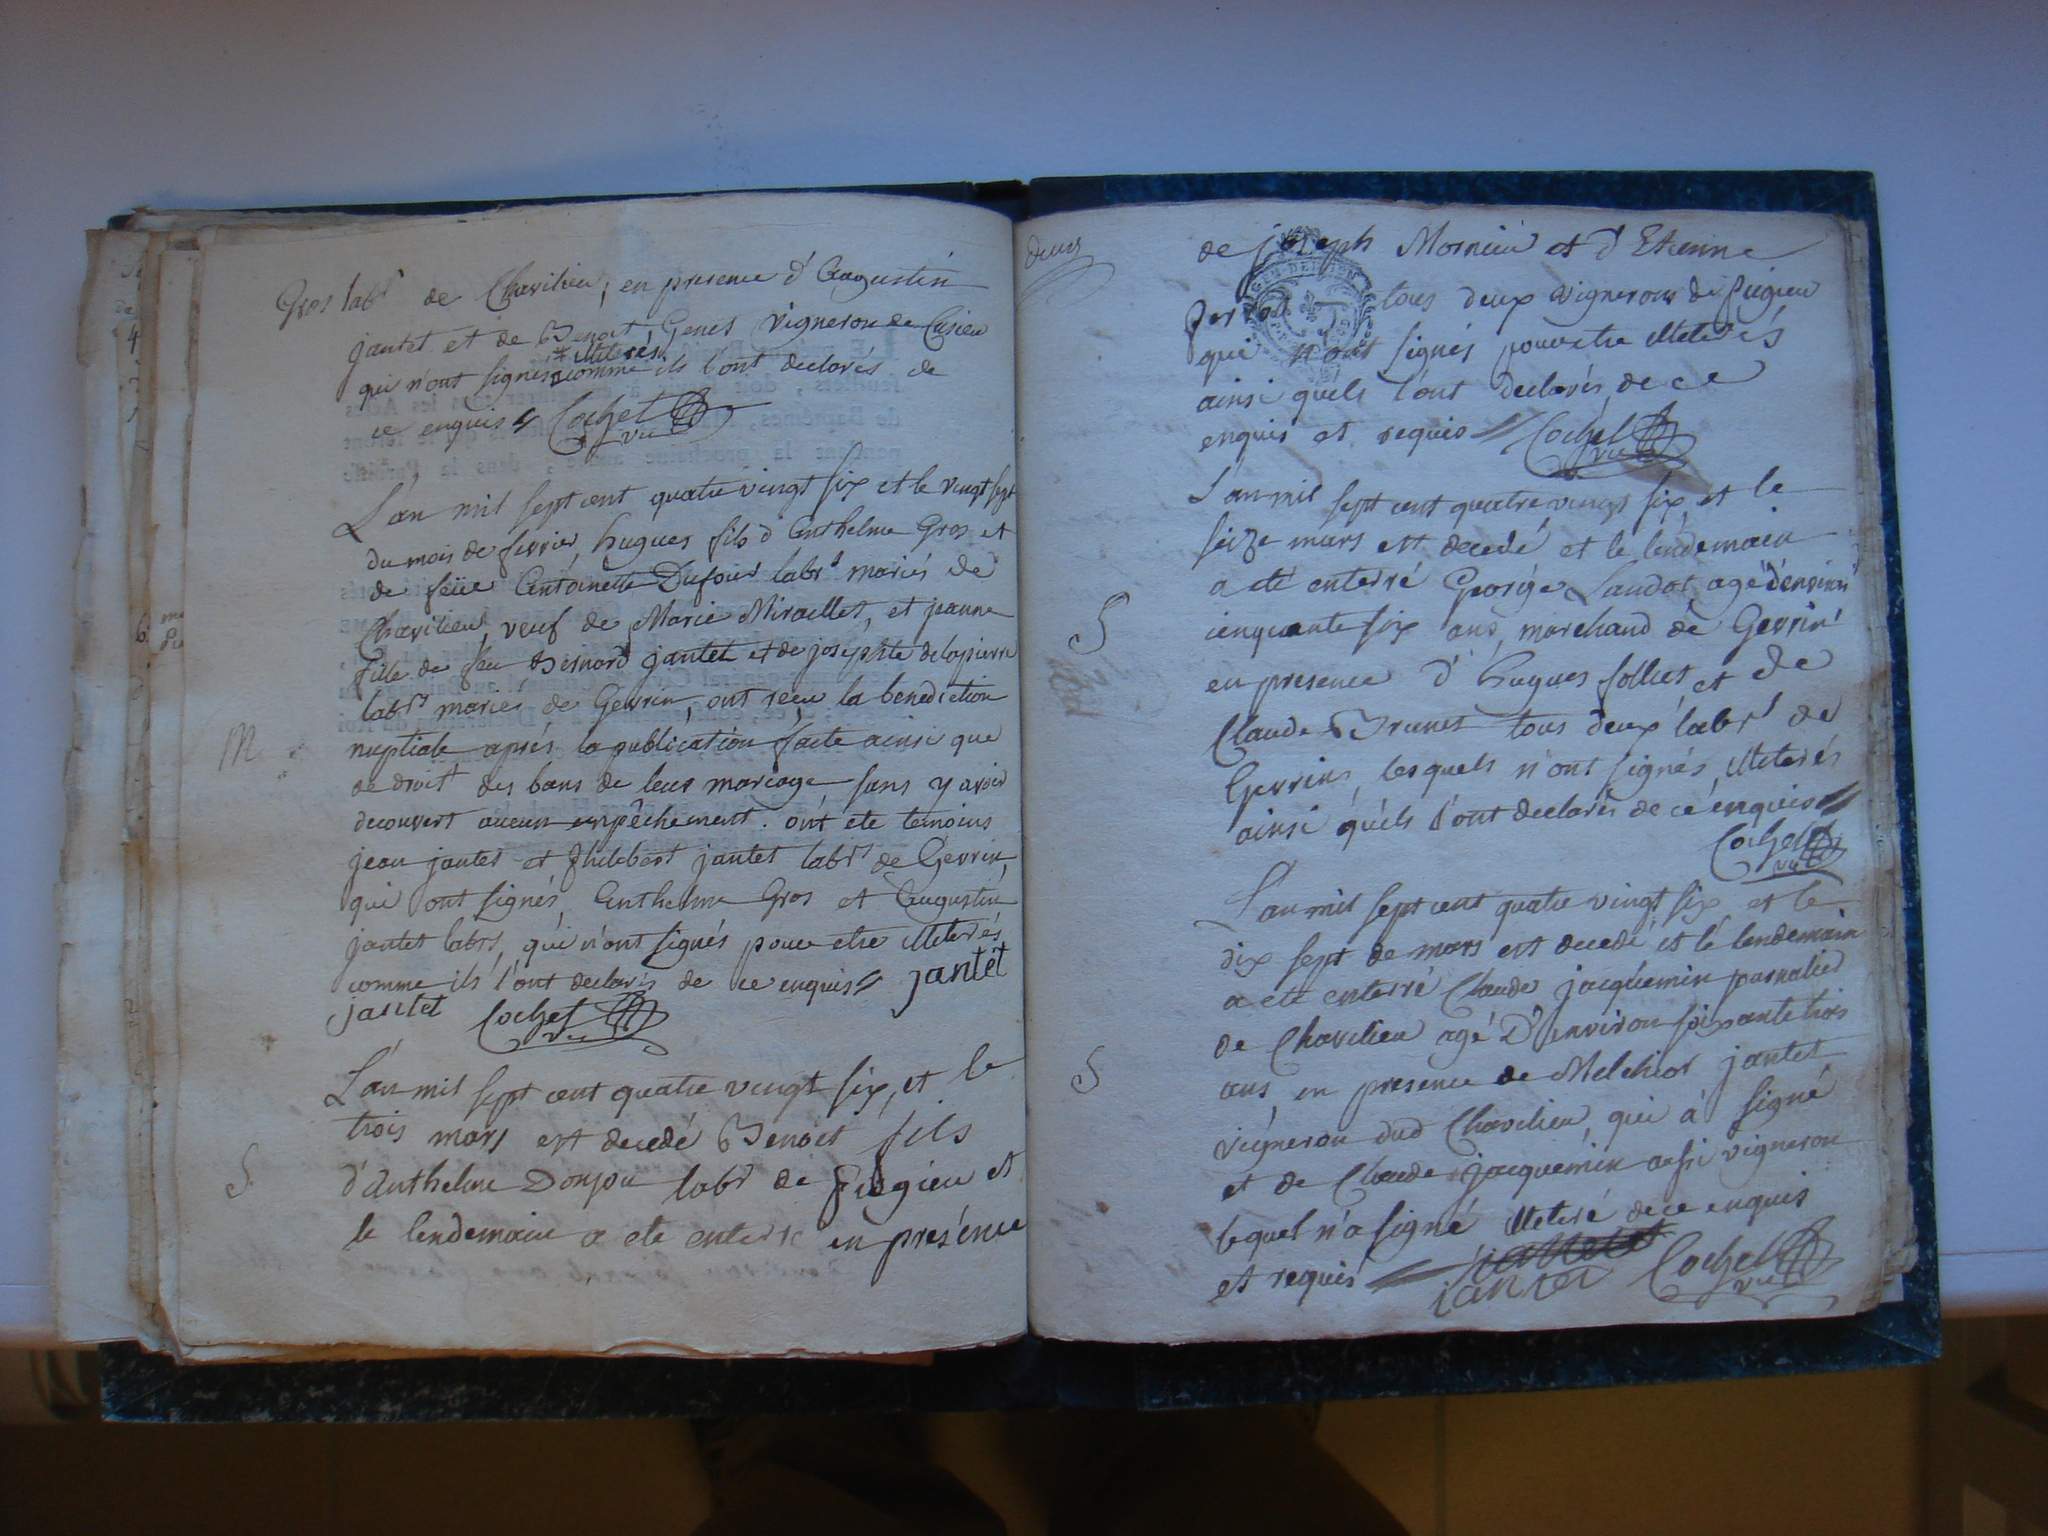 Gros labr de Chavilieu, en presence d'Augustin
jantet et de Benoit Genet vigneron de Cusieu
qui n'ont signés * comme ils l'ont declarés de
* illiterés
ce enquis // Cochet
vic
L'an mil sept cent quatre vingt six et le vingt sept
du mois de fevrier, hugues fils d'Anthelme Gros et
de feüe Antoinette Dufour labrs mariés de
Chavilieu, veuf de Marie Miraillet, et jeanne
fille de feu Bernard jantet et de josephte delapierre
labrs mariés de Gevrin, ont reçu la benediction
M
nuptiale aprés la publication faite ainsi que
de droit des bans de leur mariage sans y avoir
decouvert aucun empêchement. ont ete temoins
jean jantet et philibert jantet labrs de Gevrin,
qui ont signés, Anthelme Gros et Augustin
jantet labrs, qui n'ont signés pour etre illiterés
comme ils l'ont declarés de ce enquis // jantet
jantet Cochet
vic
L'an mil sept cent quatre vingt six, et le
trois mars est decedé Benoit fils
S.
d'Anthelme Donjou labr de fugieu et
le lendemain a ete enterré en présence
deux
de joseph Mornieu et d'Etienne
tous deux vignerons de fugieu
qui n'ont signés pour etre illiterés
ainsi qu'ils l'ont declarés de ce
enquis et requis // Cochet
vic
L'an mil sept cent quatre vingt six, et le
seize mars est decedé et le lendemain
a eté enterré George Laudot agé d'environ
S
cinquante six ans, marchand de Gevrin
en presence d'hugues folliet et de
Claude Brunet tous deux labrs de
Gevrin, lesquels n'ont signés illiterés
ainsi qu'ils l'ont declarés de ce enquis //
Cochet
vic
L'an mil sept cent quatre vingt six et le
dix sept de mars est decedé et le lendemain
a ete enterré Claude jacquemin journalier
de Chavilieu agé D'environ soixante trois
S
ans, en presence de Melchior jantet
vigneron dud Chavilieu, qui à signé
et de Claude jacquemin aussi vigneron
lequel n'a signé illiteré de ce enquis
et requis // jantet
jantet Cochet
vic